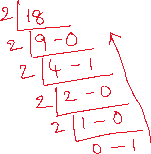 2 18
2 9 - 0
2 4 - 1
2 2 - 0
2 1 - 0
0 - 1